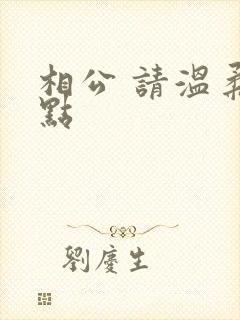 相公 請溫柔
點
劉慶生